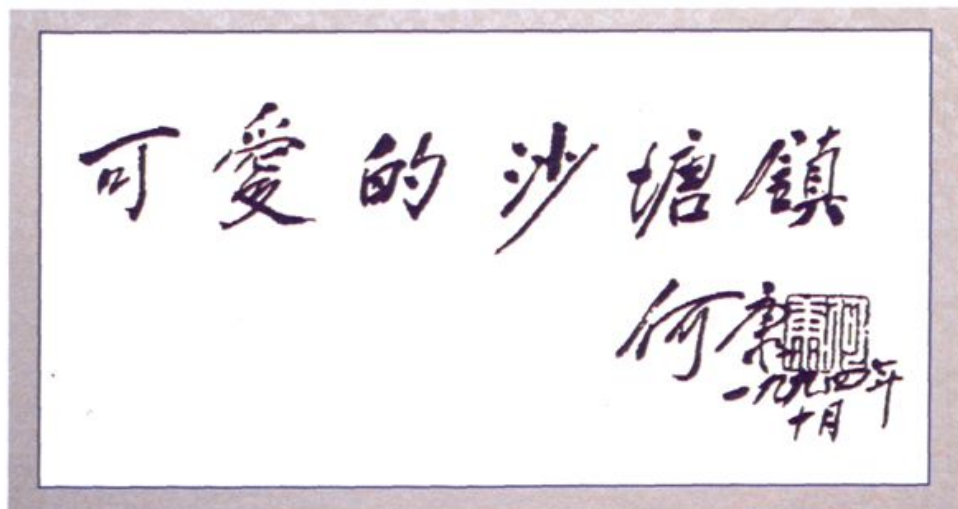 可愛的沙塘鎮
何康
何康
一九九四年
十月